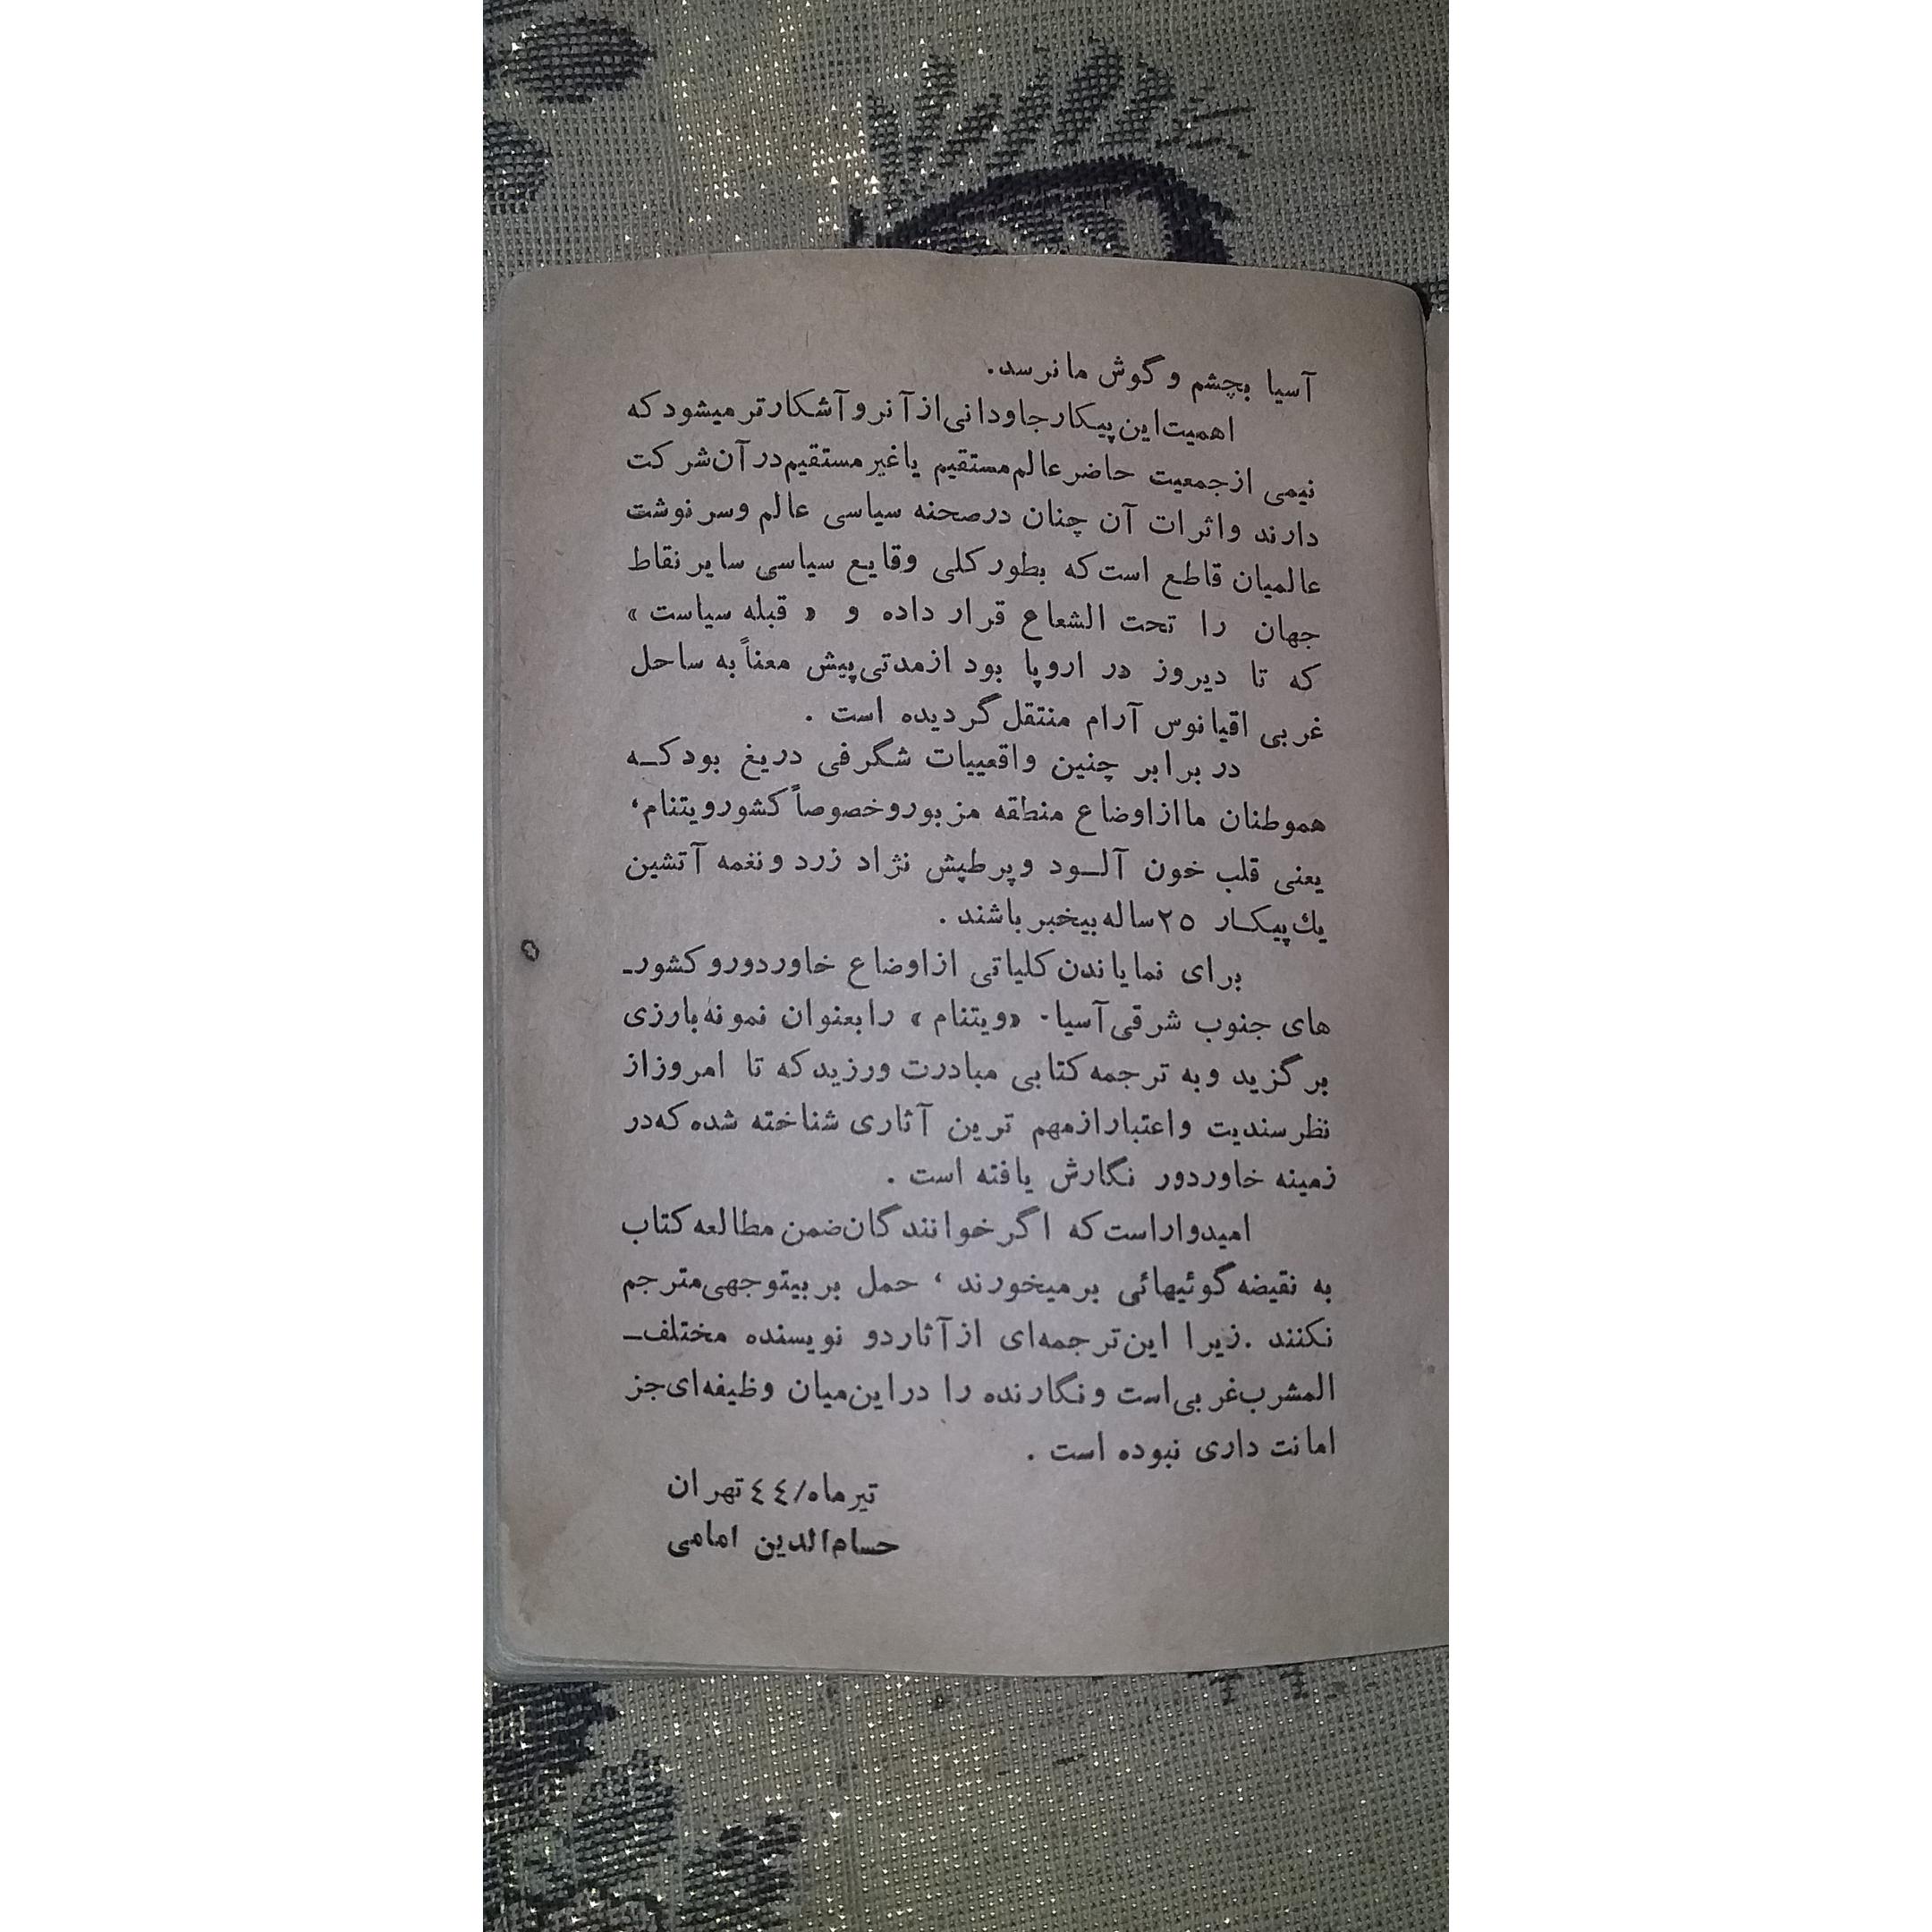 آسیا بچشم و گوش ما نرسد.
اهمیت این پیکار جاودانی از آنرو آشکارتر میشود که
نیمی از جمعیت حاضر عالم مستقیم یا غیر مستقیم در آن شرکت
دارند و اثرات آن چنان در صحنه سیاسی عالم و سرنوشت
عالمیان قاطع است که بطور کلی وقایع سیاسی سایر نقاط
جهان را تحت الشعاع قرار داده و « قبله سیاست »
که تا دیروز در اروپا بود از مدتی پیش معناً به ساحل
غربی اقیانوس آرام منتقل گردیده است .
در برابر چنین واقعییات شگرفی دریغ بود کـه
هموطنان ما از اوضاع منطقه مزبور و خصوصاً کشور ویتنام،
یعنی قلب خون آلـود و پرطپش نژاد زرد و نغمه آتشین
یك پیکـار ۲۵ ساله بیخبر باشند .
برای نمایاندن کلیاتی از اوضاع خاور دور و کشورـ
های جنوب شرقی آسیا۰ «ویتنام » را بعنوان نمونه بارزی
برگزید و به ترجمه کتابی مبادرت ورزید که تا امروز از
نظر سندیت و اعتبار از مهم ترین آثاری شناخته شده که در
زمینه خاور دور نگارش یافته است .
امیدوار است که اگر خوانندگان ضمن مطالعه کتاب
به نقیضه گوئیهائی برمیخورند ، حمل بر بیتوجهی مترجم
نکنند .زیرا این ترجمه‌ای از آثار دو نویسنده مختلفـ
المشرب غربی است و نگارنده را در این میان وظیفه‌ای جز
امانت داری نبوده است .
تیر ماه/٤٤ تهران
حسام‌الدین امامی